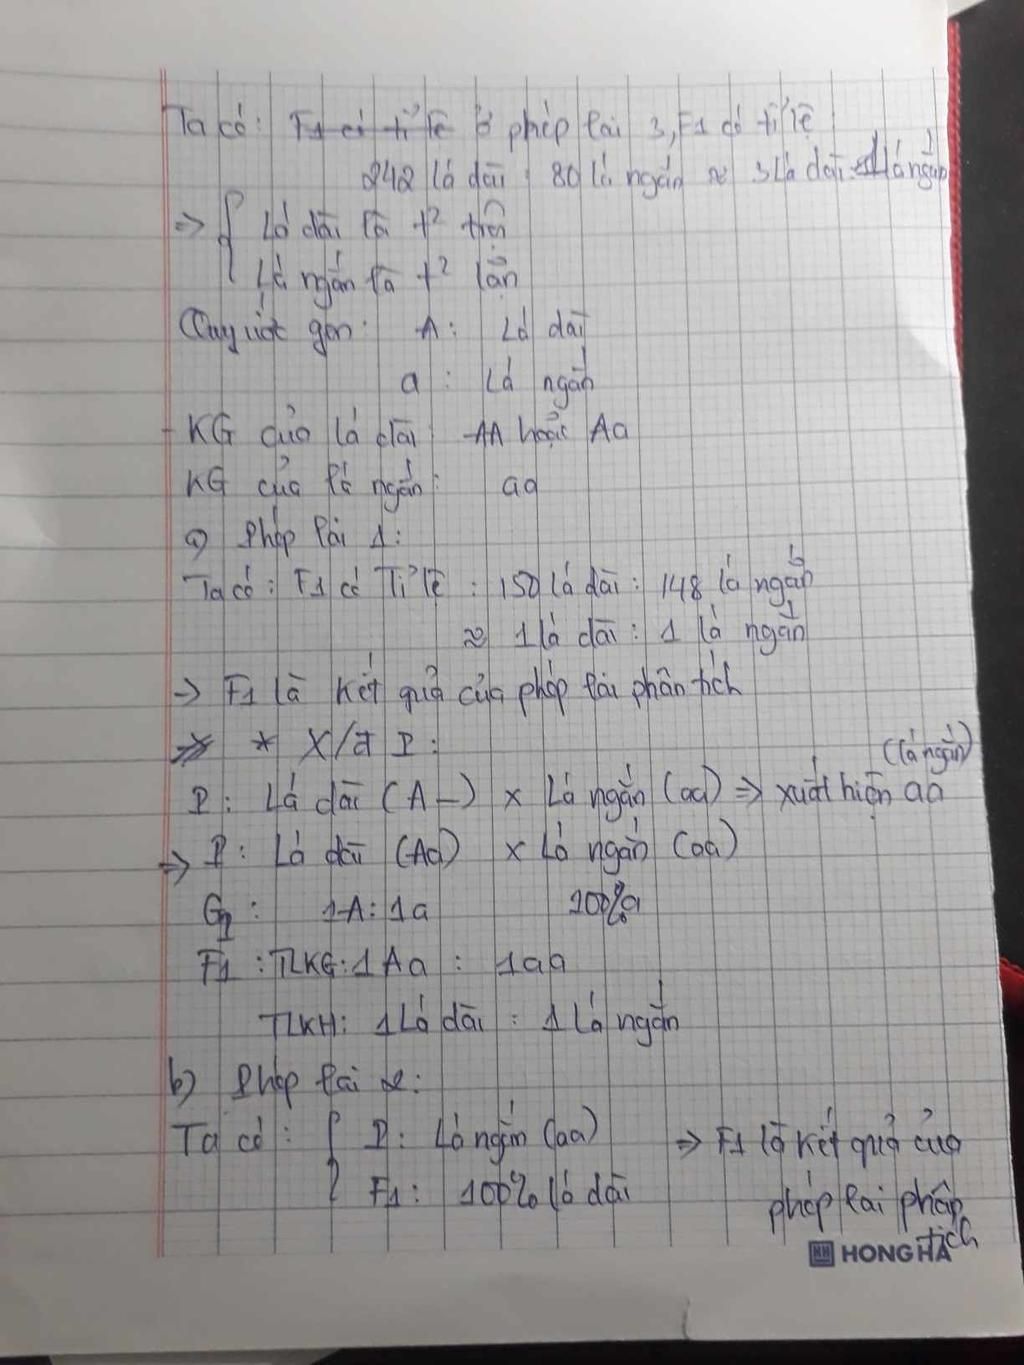 Ta có: F1 có tỉ lệ ở phép lai 3, F1 có tỉ lệ
242 lá dài : 80 lá ngắn ≈ 3 lá dài : 1 lá ngắn
=> { Lá dài là t² trội
Lá ngắn là t² lặn
Quy ước gen: A: Lá dài
a: Lá ngắn
- KG của lá dài: AA hoặc Aa
KG của lá ngắn: aa
a) Phép lai 1:
Ta có: F1 có Tỉ lệ: 150 lá dài : 148 lá ngắn
≈ 1 lá dài : 1 lá ngắn
-> F1 là kết quả của phép lai phân tích
* X/đ P:
(lá ngắn)
P: Lá dài (A-) x Lá ngắn (aa) => xuất hiện aa
=> P: Lá dài (Aa) x Lá ngắn (aa)
Gp: 1A : 1a 100%a
F1: TLKG: 1Aa : 1aa
TLKH: 1 Lá dài : 1 Lá ngắn
b) Phép lai 2:
Ta có: { P: Lá ngắn (aa) => F1 là kết quả của
F1: 100% lá dài phép lai phân
tích
HONG HA